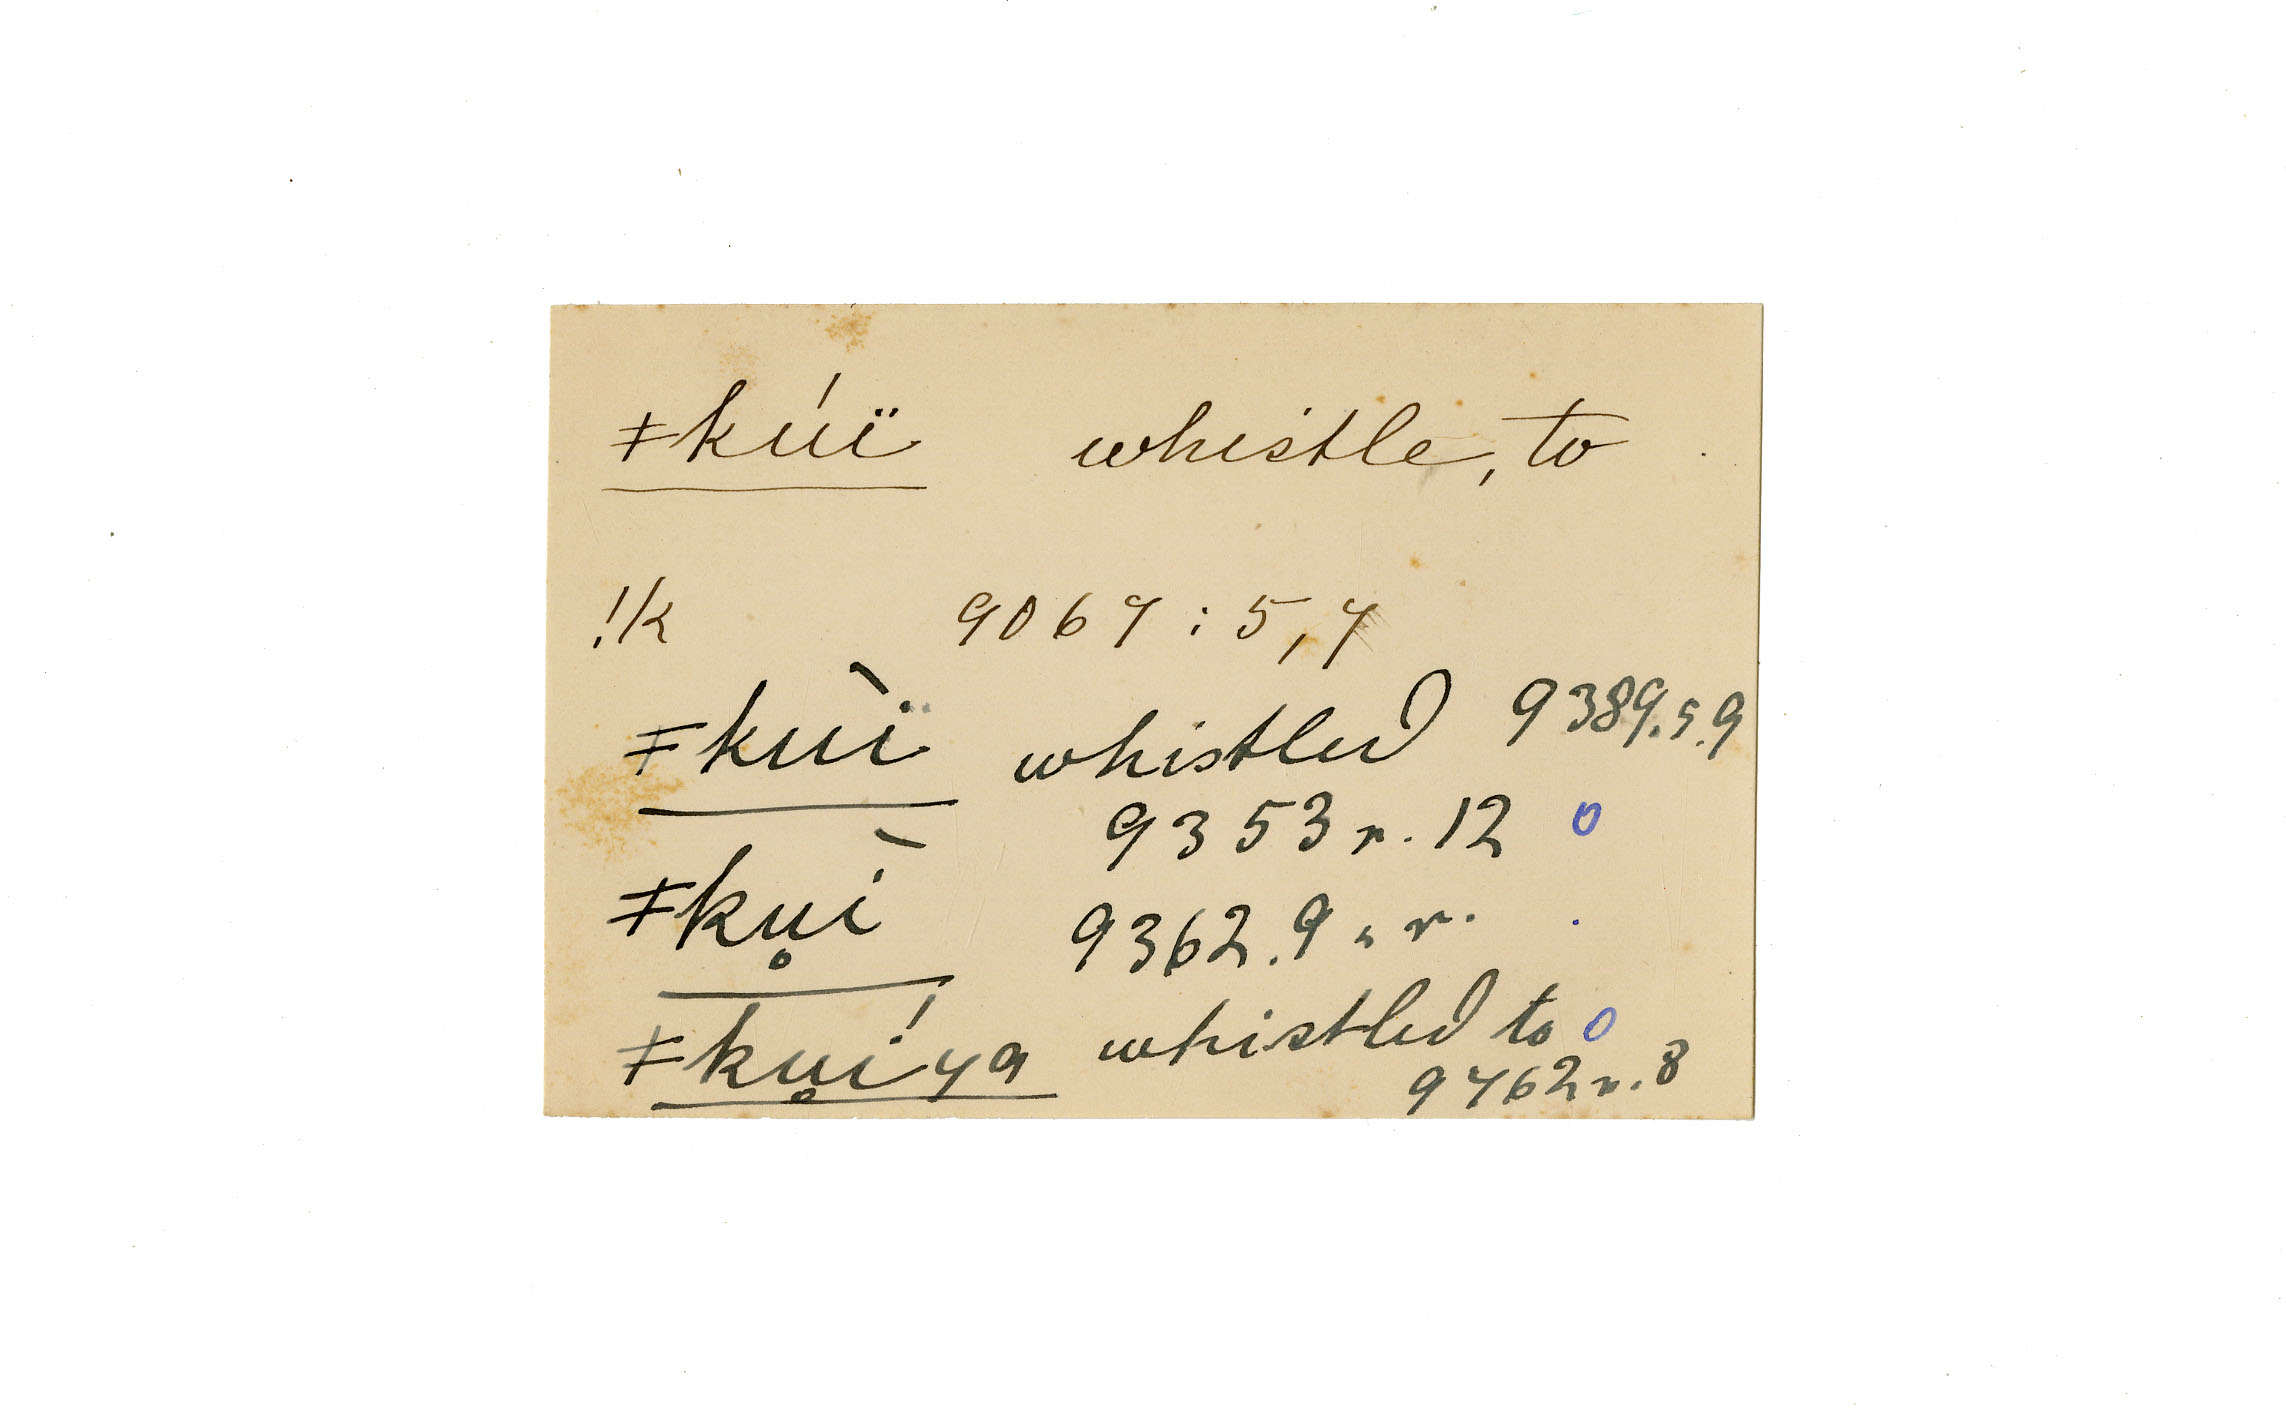 ǂkúï whistle, to
!k 9067 : 5, 7
ǂkùï whistled 9389. 5. 9
9353 r. 12 o
ǂkụì 9362. 9. r.
ǂkụíya whistled to o
9762 r. 8